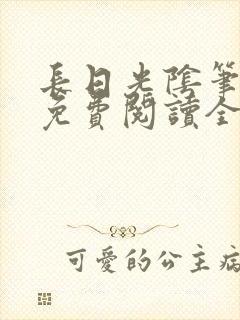 長日光陰筆
免費閱讀全
可愛的公主病